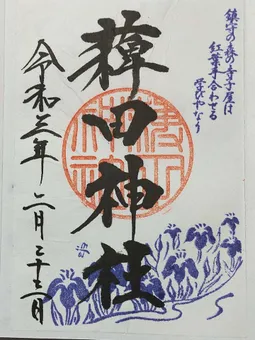 鎮守の森の寺子屋は
紅葉手合わせる
学びやなり
薭田神社
令和三年二月二十三日